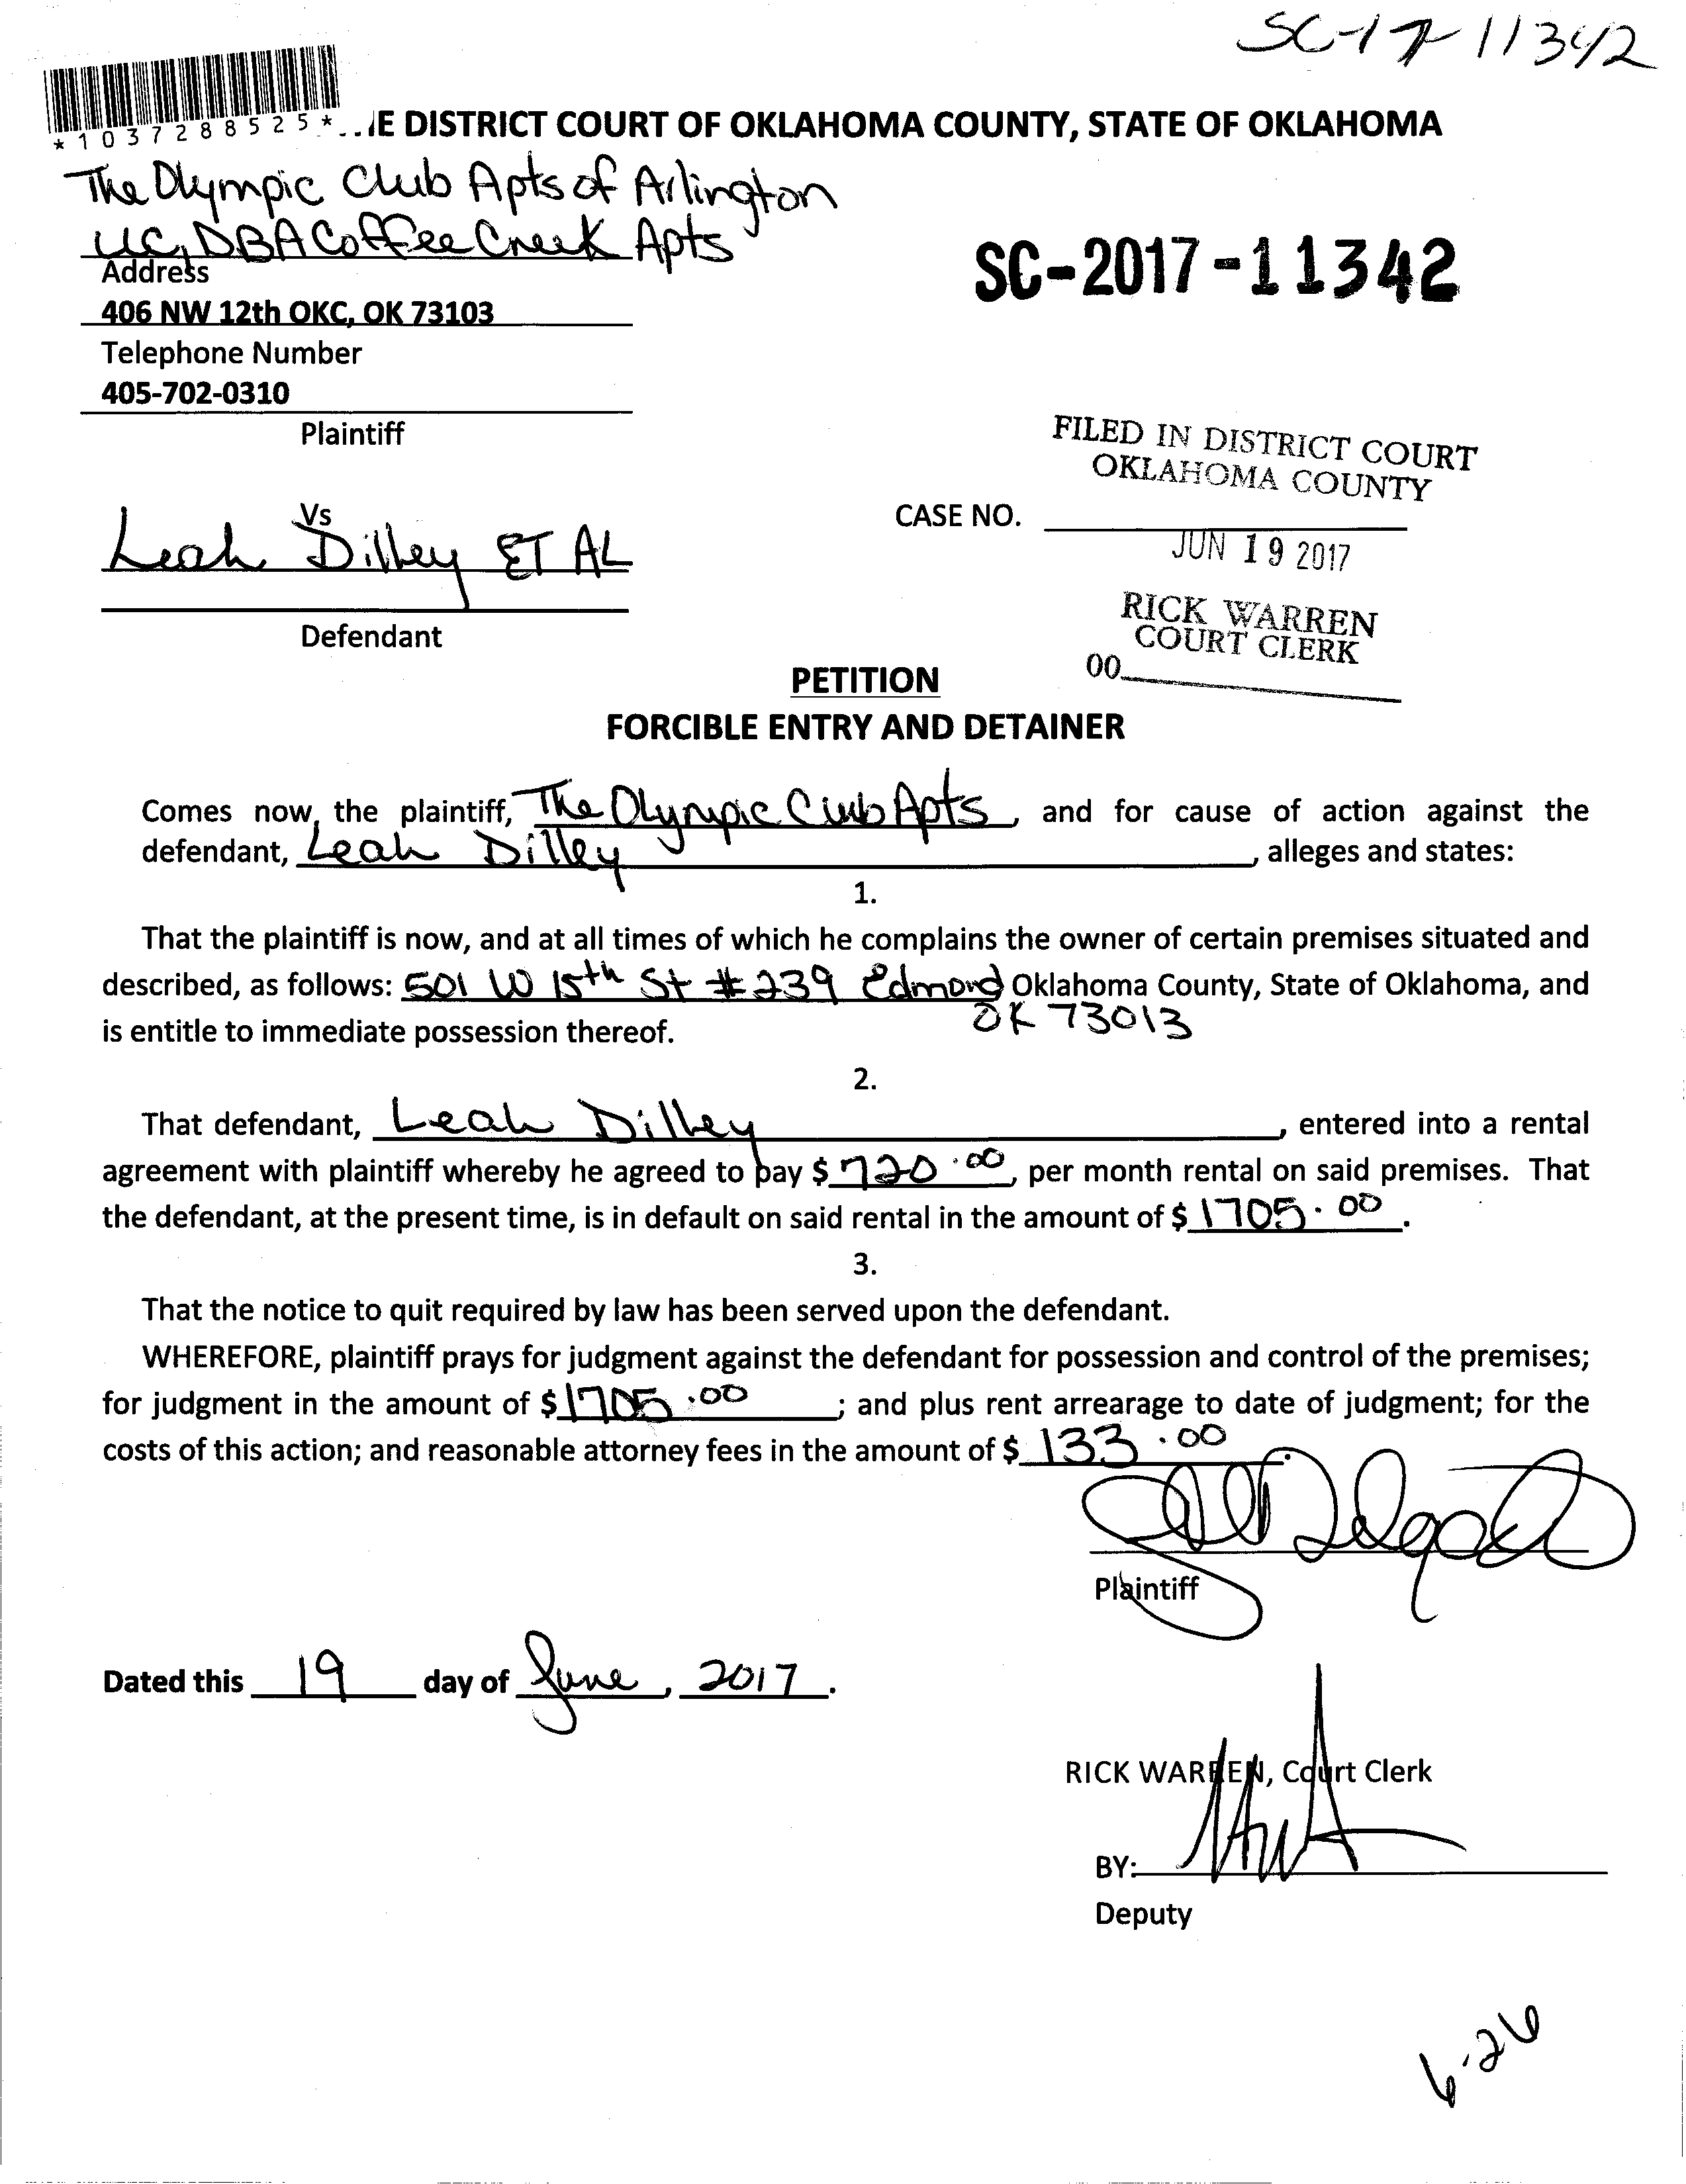 SC-17-11342
*1037288525*
IE DISTRICT COURT OF OKLAHOMA COUNTY, STATE OF OKLAHOMA
The Olympic Club Apts of Arlington
LLC, DBA Coffee Creek Apts
SC-2017-11342
Address
406 NW 12th OKC, OK 73103
Telephone Number
405-702-0310
Plaintiff
FILED IN DISTRICT COURT
OKLAHOMA COUNTY
Vs
CASE NO.
Leah Dilley ET AL
JUN 19 2017
RICK WARREN
COURT CLERK
Defendant
00
PETITION
FORCIBLE ENTRY AND DETAINER
Comes now, the plaintiff, The Olympic Club Apts, and for cause of action against the
defendant, Leah Dilley, alleges and states:
1.
That the plaintiff is now, and at all times of which he complains the owner of certain premises situated and
described, as follows: 501 W 15th St #239 Edmond Oklahoma County, State of Oklahoma, and
OK 73013
is entitle to immediate possession thereof.
2.
That defendant, Leah Dilley, entered into a rental
agreement with plaintiff whereby he agreed to pay $ 720.00, per month rental on said premises. That
the defendant, at the present time, is in default on said rental in the amount of $ 1705.00.
3.
That the notice to quit required by law has been served upon the defendant.
WHEREFORE, plaintiff prays for judgment against the defendant for possession and control of the premises;
for judgment in the amount of $ 1705.00; and plus rent arrearage to date of judgment; for the
costs of this action; and reasonable attorney fees in the amount of $ 133.00.
Plaintiff
Dated this 19 day of June, 2017.
RICK WARREN, Court Clerk
BY:
Deputy
6-26